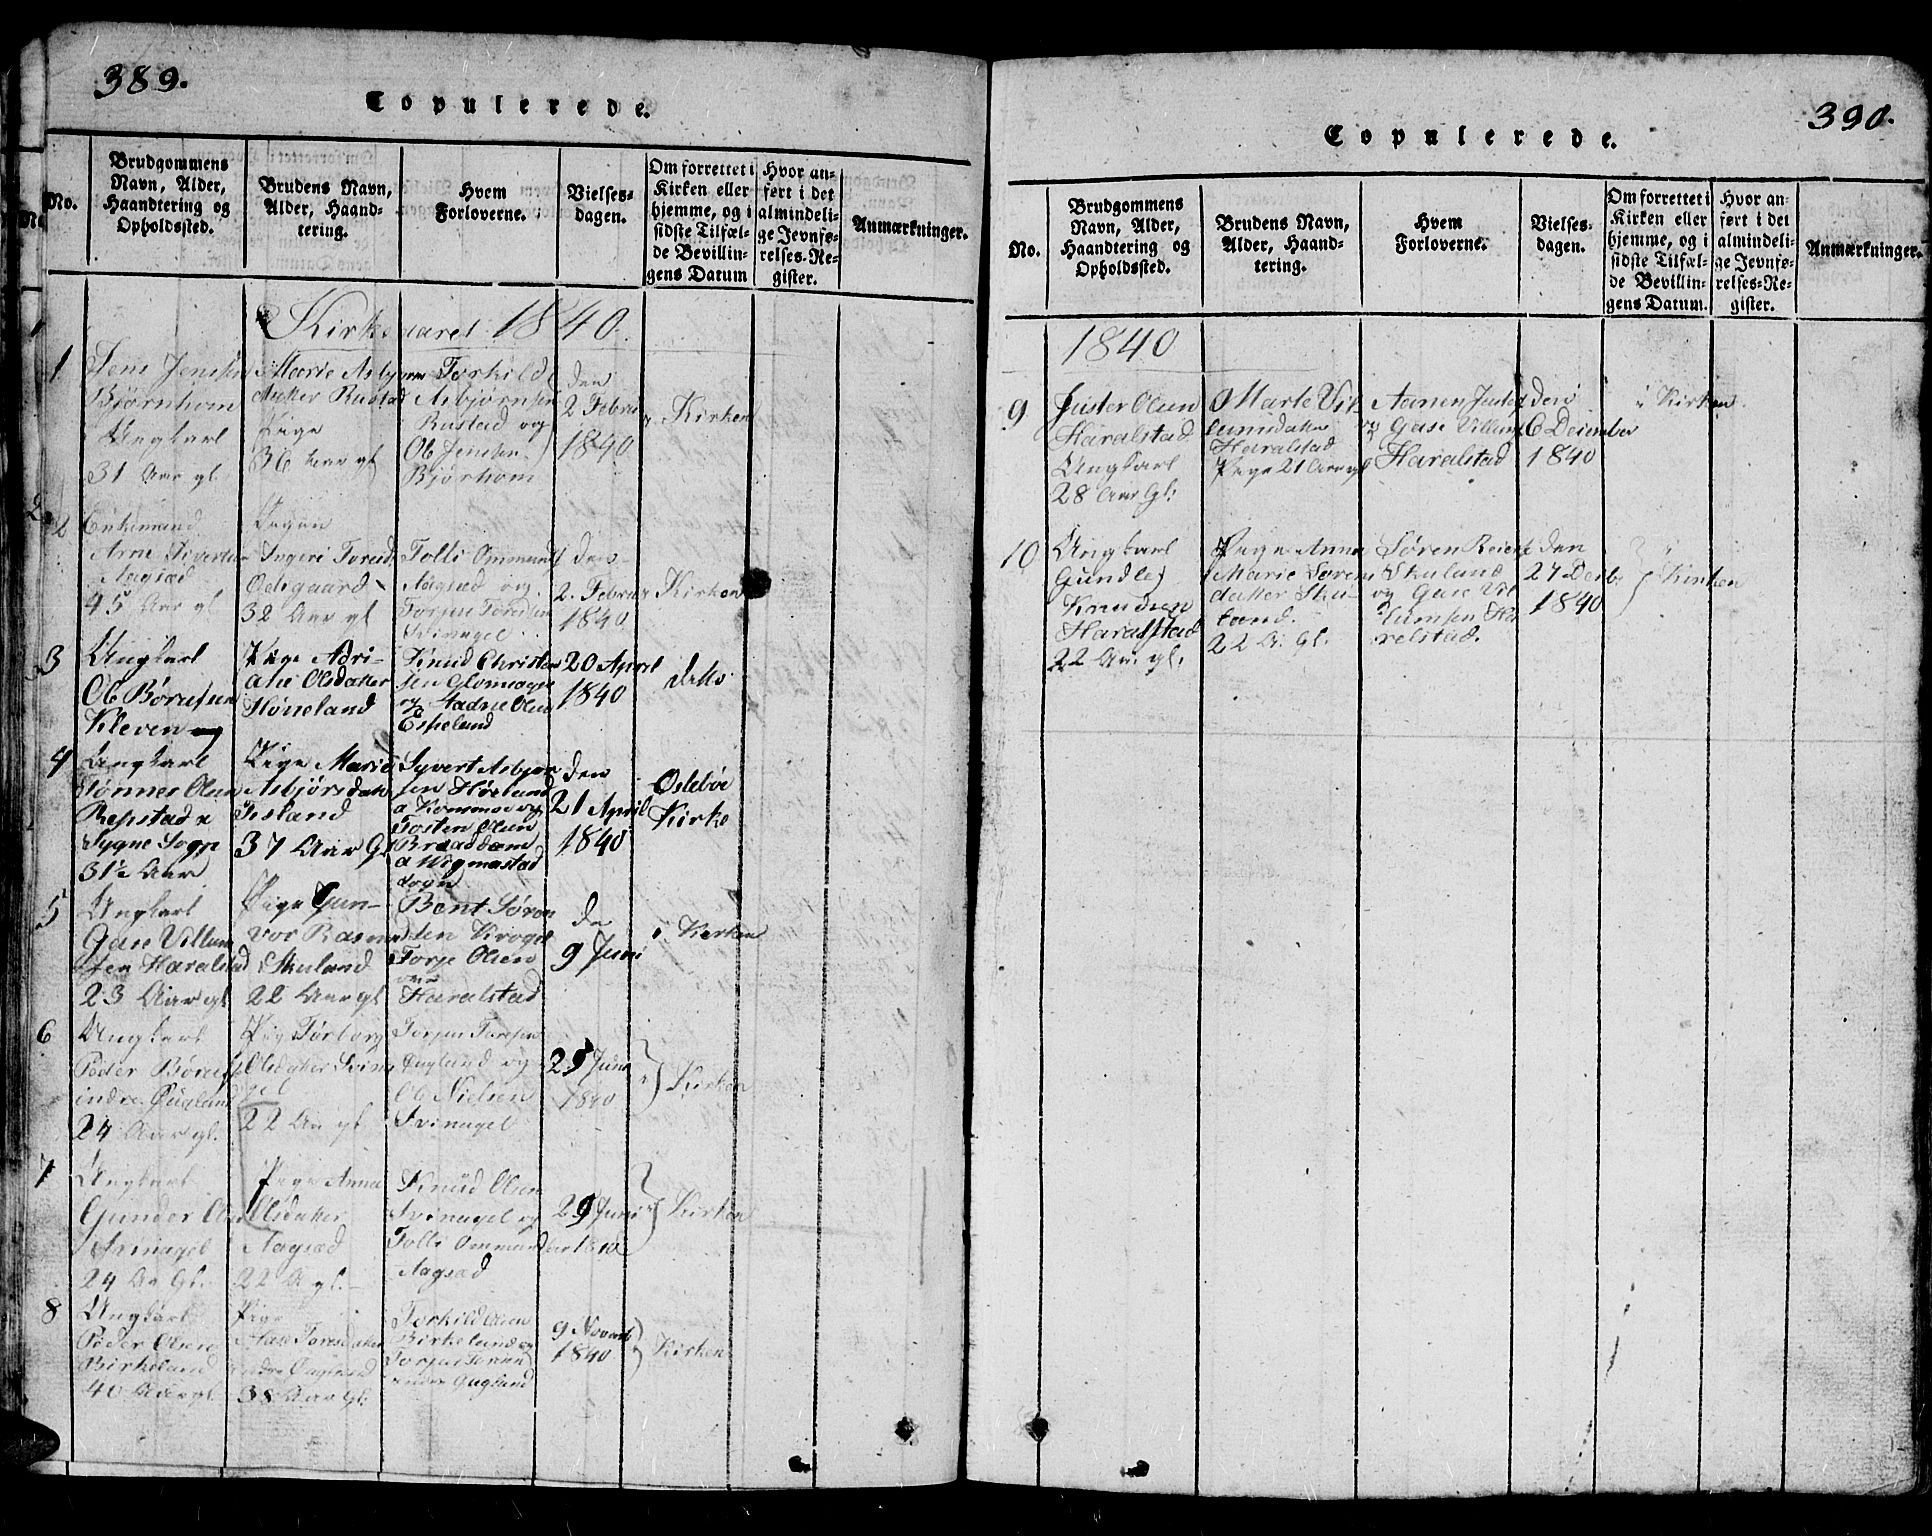 389.
Copulerede.
No.
Brudgommens
Navn, Alder,
Haandtering og
Opholdssted.
Brudens Navn,
Alder, Haand-
tering.
Hvem
Forloverne.
Vielses-
dagen.
Om forrettet i
Kirken eller
hjemme, og i
sidste Tilfæl-
de Bevillin-
gens Datum
Hvor an-
ført i det
almindeli-
ge Jevnfø-
relses-Re-
gister.
Anmærkninger.
Kirkeaaret 1840.
1
Jens Jensen
Bjørnhom
Ungkarl
31 Aar gl.
Marie Asbjørn
datter Rustad
Pige
36 Aar gl
Torkild
Asbjørnsen
Rustad og
Ob Jensen
Bjørhom
den
2 Februar
1840
Kirken
2
Enkemand
Arne Sivertsen
Aagsæd
45 Aar gl
Pigen
Ingeri Toresd
Odegaard
32 Aar gl
Tolli Ommunds
Aagsæd og
Torjus Toresen
Svinagel
den
2. Februar
1840
Kirken
3
Ungkarl
Ob Børusen
Kleven
Pige Adri-
ane Olsdatter
Høneland
Knud Christen
sen Glomsager
og Aadne Olsen
Espeland
20 April
1840
detto
4
Ungkarl
Tønnes Olsen
Repstad a
Sygne Sogn
31½ Aar
Pige Marie
Asbjørsdatter
Fisland
37 Aar Gl
Syvert Asbjørn
sen Høiland
a Konsmoe og
Tosten Olsen
Braaddam
a Wigmostad
Sogn
den
21 April
1840
Oslebøe
Kirke
5
Ungkarl
Gase Villum
sen Haralstad
23 Aar gl
Pige Gun-
vor Rasmusd
Skuland
22 Aar gl
Bent Søren
sen Krogel
Torje Olsen
Haralstad
den
9 Juni
i Kirken
6
Ungkarl
Peder Børusen
indre Øugland
24 Aar gl.
Pige Torborg
Olsdatter Svina
gel
22 Aar gl
Torjus Toresen
Øugland og
Ob Nielsen
Svinagel
29 Juni
1840
i Kirken
7
Ungkarl
Gunder Olsen
Svinagel
24 Aar Gl.
Pige Anna
Olsdatter
Aagsæd
22 A gl.
Knud Olsen
Svinagel og
Tolli Ommund
Aagsæd
29 Juni
1840
i Kirken
8
Ungkarl
Peder Olsen
Birkeland
40 Aar gl
Pige
Aase Toresdatter
indre Øugland
38 Aar Gl.
Torkild Olsen
Birkeland og
Torjus Toresen
indre Øugland
9 Novemb
1840
Kirken
390.
Copulerede.
No.
Brudgommens
Navn, Alder,
Haandtering og
Opholdssted.
Brudens Navn,
Alder, Haand-
tering.
Hvem
Forloverne.
Vielses-
dagen.
Om forrettet i
Kirken eller
hjemme, og i
sidste Tilfæl-
de Bevillin-
gens Datum.
Hvor an-
ført i det
almindeli-
ge Jevnfø-
relses-Re-
gister.
Anmærkninger.
1840
9
Juster Olsen
Haralstad
Ungkarl
28 Aar Gl.
Marte Vil
lumsdatter
Haralstad
Pige 21 Aar gl
Aanen
og Gase Villums
Haralstad
den
6 December
1840
i Kirken.
10
Ungkarl
Gundlej
Knudsen
Haralstad
22 Aar gl.
Pige Anna
Marie Sørens
datter Sku-
land
22 A. Gl.
Søren Reiers
Skuland
og Gase Vil
lumsen Ha
relstad.
den
27 Decbr
1840
i
Kirken